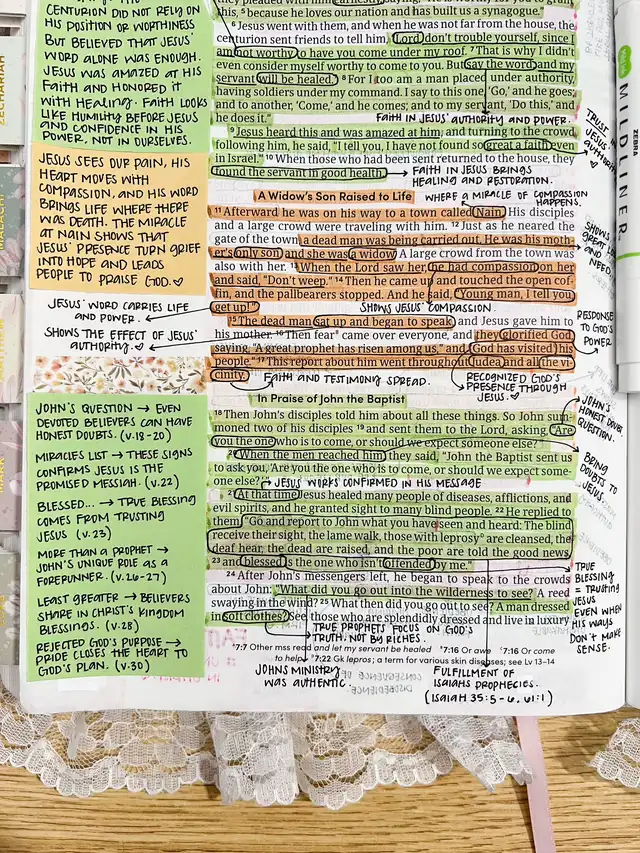 CENTURION DID NOT RELY ON
HIS POSITION OR WORTHINESS
BUT BELIEVED THAT JESUS'
WORD ALONE WAS ENOUGH.
JESUS WAS AMAZED AT HIS
FAITH AND HONORED IT
WITH HEALING. FAITH LOOKS
LIKE HUMILITY BEFORE JESUS
AND CONFIDENCE IN HIS
POWER, NOT IN OURSELVES.
JESUS SEES OUR PAIN, HIS
HEART MOVES WITH
COMPASSION, AND HIS WORD
BRINGS LIFE WHERE THERE
WAS DEATH. THE MIRACLE
AT NAIN SHOWS THAT
JESUS' PRESENCE TURN GRIEF
INTO HOPE AND LEADS
PEOPLE TO PRAISE GOD.
JESUS' WORD CARRIES LIFE
AND POWER.
SHOWS THE EFFECT OF JESUS'
AUTHORITY.
JOHN'S QUESTION → EVEN
DEVOTED BELIEVERS CAN HAVE
HONEST DOUBTS. (V.18-20)
MIRACLES LIST → THESE SIGNS
CONFIRMS JESUS IS THE
PROMISED MESSIAH. (V.22)
BLESSED... → TRUE BLESSING
COMES FROM TRUSTING
JESUS (V.23)
MORE THAN A PROPHET →
JOHN'S UNIQUE ROLE AS A
FORERUNNER. (V.26-27)
LEAST GREATER → BELIEVERS
SHARE IN CHRIST'S KINGDOM
BLESSINGS. (V.28)
REJECTED GOD'S PURPOSE →
PRIDE CLOSES THE HEART TO
GOD'S PLAN. (V.30)
this, 5 because he loves our nation and has built us a synagogue."
6 Jesus went with them, and when he was not far from the house, the
centurion sent friends to tell him, "Lord, don't trouble yourself, since I
not worthy to have you come under my roof. 7 That is why I didn't
even consider myself worthy to come to you. But say the word, and my
servant will be healed. 8 For I too am a man placed under authority,
having soldiers under my command. I say to this one, 'Go,' and he goes;
and to another, 'Come,' and he comes; and to my servant, 'Do this,' and
he does it."
FAITH IN JESUS' AUTHORITY AND POWER.
9 Jesus heard this and was amazed at him, and turning to the crowd
following him, he said, "I tell you, I have not found so great a faith even
in Israel." 10 When those who had been sent returned to the house, they
found the servant in good health.
FAITH IN JESUS BRINGS
HEALING AND RESTORATION.
A Widow's Son Raised to Life
WHERE A MIRACLE OF COMPASSION
HAPPENS.
11 Afterward he was on his way to a town called Nain. His disciples
and a large crowd were traveling with him. 12 Just as he neared the
gate of the town, a dead man was being carried out. He was his moth-
er's only son, and she was a widow. A large crowd from the town was
also with her. 13 When the Lord saw her, he had compassion on her
and said, "Don't weep." 14 Then he came up and touched the open cof-
fin, and the pallbearers stopped. And he said, "Young man, I tell you,
get up!"
SHOWS JESUS' COMPASSION.
15 The dead man sat up and began to speak, and Jesus gave him to
his mother. 16 Then fear* came over everyone, and they glorified God,
saying, "A great prophet has risen among us," and "God has visited his
people." 17 This report about him went throughout Judea and all the vi-
cinity.
FAITH AND TESTIMONY SPREAD.
RECOGNIZED GOD'S
PRESENCE THROUGH
JESUS.
In Praise of John the Baptist
18 Then John's disciples told him about all these things. So John sum-
moned two of his disciples 19 and sent them to the Lord, asking, "Are
you the one who is to come, or should we expect someone else?"
20 When the men reached him, they said, "John the Baptist sent us
to ask you, 'Are you the one who is to come, or should we expect some-
one else?'"
JESUS WORKS CONFIRMED IN HIS MESSAGE
21 At that time Jesus healed many people of diseases, afflictions, and
evil spirits, and he granted sight to many blind people. 22 He replied to
them, "Go and report to John what you have seen and heard: The blind
receive their sight, the lame walk, those with leprosy* are cleansed, the
deaf hear, the dead are raised, and the poor are told the good news,
23 and blessed is the one who isn't offended by me."
24 After John's messengers left, he began to speak to the crowds
about John: "What did you go out into the wilderness to see? A reed
swaying in the wind? 25 What then did you go out to see? A man dressed
in soft clothes? See, those who are splendidly dressed and live in luxury
TRUE PROPHETS FOCUS ON GOD'S
TRUTH. NOT BY RICHES.
7:7 Other mss read and let my servant be healed 7:16 Or awe 7:16 Or come
to help 7:22 Gk lepros; a term for various skin diseases; see Lv 13–14
JOHNS MINISTRY
WAS AUTHENTIC.
FULFILLMENT OF
ISAIAHS PROPHECIES.
(ISAIAH 35:5-6, 61:1)
TRUST IN
JESUS'
AUTHORITY
SHOWS
GREAT
AND
NEED.
RESPONSE
TO GOD'S
POWER
JOHN'S
HONEST DOUBT,
QUESTION.
BRING
DOUBTS TO
JESUS.
TRUE
BLESSING
= TRUSTING
JESUS
EVEN WHEN
HIS WAYS
DON'T MAKE
SENSE.
ZEBRA
MILDLINER
ZECHARIAH
MALACHI
MARK